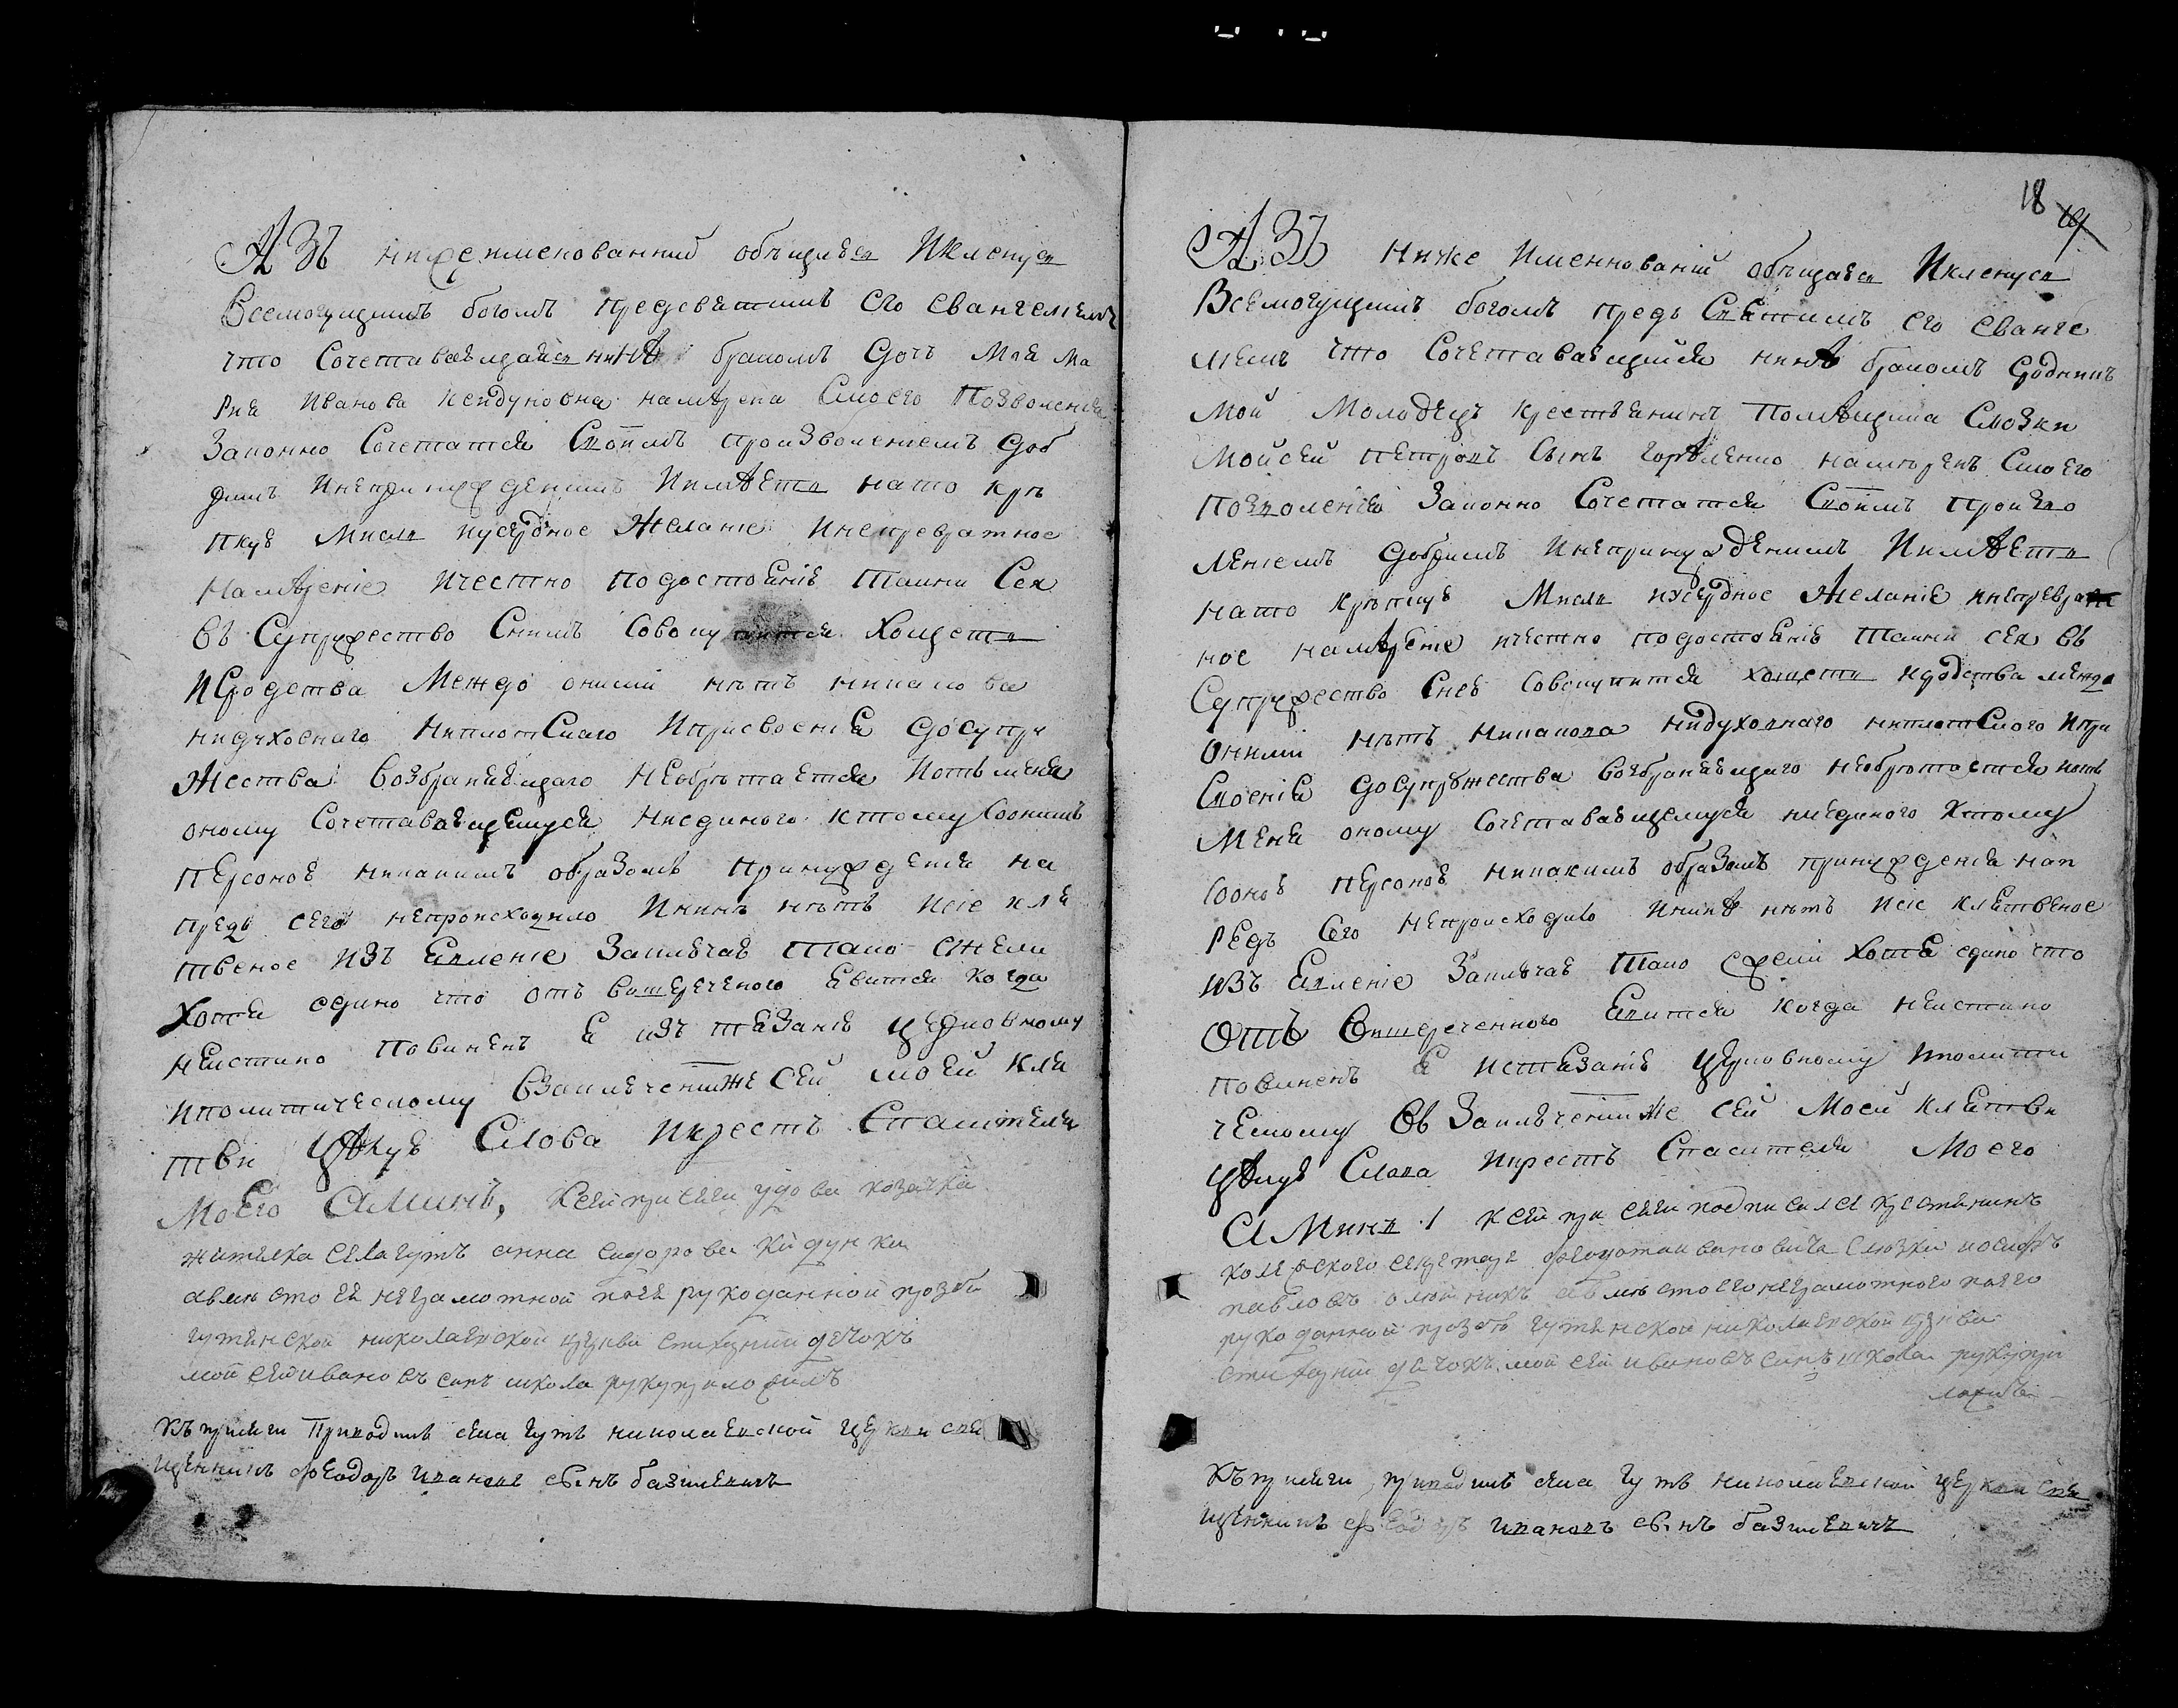 Азъ нижеименованний обѣщаюся Иклєнуся
Всемогущимъ богомъ предсвятимъ єго євангелиемъ
что сочетавающаяся нинѣ бракомъ дочъ моя ма
рия Иванова Кендуковна намѣрена смоего позволения
законно сочетатся своимъ произволениемъ доб
римъ инепринужденнимъ иимѣетъ на то крѣ
пкую мисль иусердное желание инепревратное
намѣрение ичестно подостоянию таини сея
въ супружество снимъ совокупитися хощетъ
исродства между оними нѣтъ никакова
нидуховнаго ниплотскаго иприсвоения досупру
жества возбраняющаго необрѣтается иотъ меня
оному сочетавающемуся ниєдиного ктому соонимъ
персоною никакимъ образомъ принуждения на
предь сего непроисходило ининѣ нѣтъ исие кля
твеное изъявление заключаю тако ежели
хотя єдино что отъ вишеречєного явится когда
неистино повиненъ я изътязанию церковному
иполитическому взаключенииже сей моей кля
тви цѣлую слова икрестъ спасителя
моего аминь, ксей присяги удова козачка
жителка села гутъ анна сидорова
авмѣсто ея неграмотной поея рукоданной прозбѣ
гутянской николаевской церкви стихарний дячокъ
моисей ивановъ синъ школа руку приложилъ
Къ присяги приводилъ села гутъ николаевской церкви свя
щенникъ феодоръ ивановъ синъ базилевичъ
18
Азъ ниже именнованїй обѣщаюся Иклєнуся
Всемогущимъ богомъ предъ святимъ его єванге
лиемъ что сочетавающийся нинѣ бракомъ сродникъ
мой молодецъ крестьянинъ помѣщика слюзки
мойсей петровъ синъ горѣленко намѣренъ смоего
позволения законно сочетатся своимъ произво
лениемъ добримъ инепринужденимъ иимѣетъ
на то крѣпкую мисль иусердное желание инепреврат
ное намѣрение ичестно подостоянию таини сея въ
супружество снею совокупитися хощетъ исродства между
оними нѣтъ никакова нидуховнаго ниплотского ипри
своения досупружества возбраняющаго необрѣтается иотъ
меня оному сочетавающемуся ниединого ктому
сооною персоною никакимъ образомъ принуждения нап
редъ сего непроисходило ининѣ нѣтъ исие клятвеное
изъявление заключаю тако ежели хотя єдино что
отъ вишереченного явится когда неистино
повиненъ я истязанию церковному иполити
ческому въ заключениюже сей моей клятви
цѣлую слова икрестъ спасителя моего
Аминь. ксей присяги подписался крестянинъ
колежского секретаря слюзки иосифъ
павловъ олейникъ авмѣсто его неграмотного поего
рукоданной прозбѣ гутянской николаевской церкви
стихарний дячокъ мойсей ивановъ синъ школа руку при
ложилъ
Къ присяги приводилъ села гутъ николаевской церкви свя
щенникъ феодоръ ивановъ синъ базилевичъ